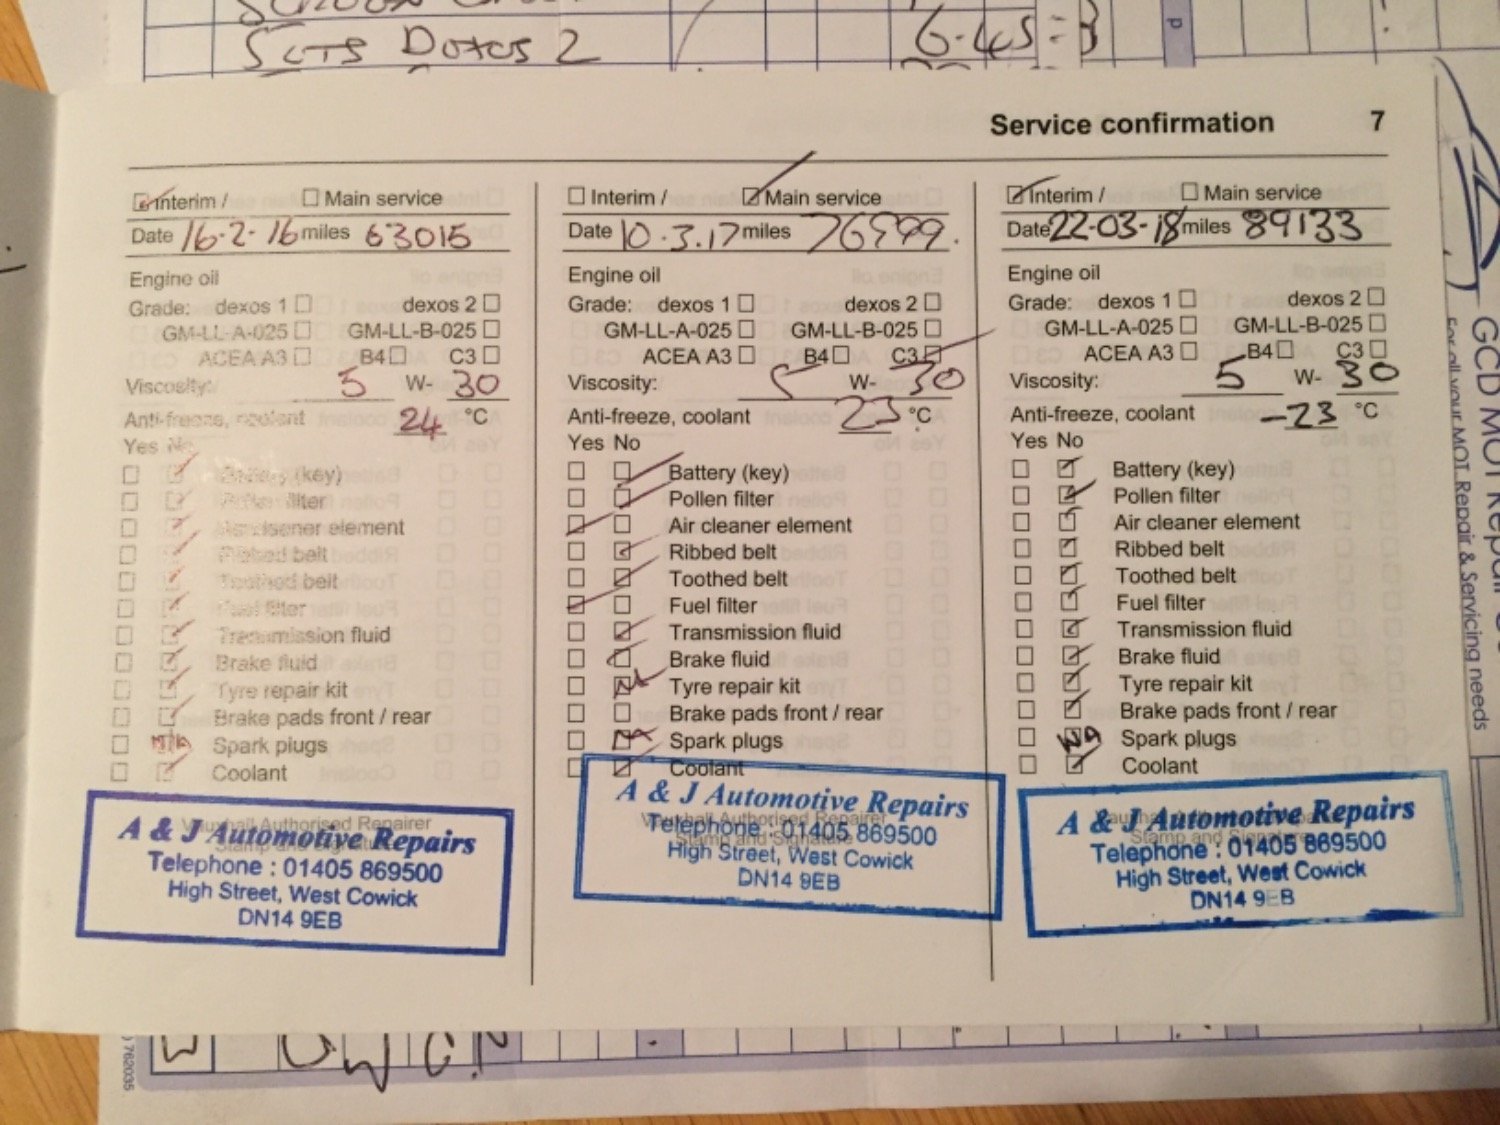 SLTS DEXOS 2
6.45 = 3
Service confirmation 7
Interim / Main service
Date 16-2-16 miles 63015
Engine oil
Grade: dexos 1 dexos 2
GM-LL-A-025 GM-LL-B-025
ACEA A3 B4 C3
Viscosity: 5 W- 30
Anti-freeze, coolant 24 °C
Yes No
Battery (key)
Pollen filter
Air cleaner element
Ribbed belt
Toothed belt
Fuel filter
Transmission fluid
Brake fluid
Tyre repair kit
Brake pads front / rear
N/A Spark plugs
Coolant
Vauxhall Authorised Repairer
Stamp and Signature
A & J Automotive Repairs
Telephone : 01405 869500
High Street, West Cowick
DN14 9EB
Interim / Main service
Date 10.3.17 miles 76999.
Engine oil
Grade: dexos 1 dexos 2
GM-LL-A-025 GM-LL-B-025
ACEA A3 B4 C3
Viscosity: 5 W- 30
Anti-freeze, coolant 23 °C
Yes No
Battery (key)
Pollen filter
Air cleaner element
Ribbed belt
Toothed belt
Fuel filter
Transmission fluid
Brake fluid
Tyre repair kit
Brake pads front / rear
Spark plugs
Coolant
Vauxhall Authorised Repairer
Stamp and Signature
A & J Automotive Repairs
Telephone : 01405 869500
High Street, West Cowick
DN14 9EB
Interim / Main service
Date 22-03-18 miles 89133
Engine oil
Grade: dexos 1 dexos 2
GM-LL-A-025 GM-LL-B-025
ACEA A3 B4 C3
Viscosity: 5 W- 30
Anti-freeze, coolant -23 °C
Yes No
Battery (key)
Pollen filter
Air cleaner element
Ribbed belt
Toothed belt
Fuel filter
Transmission fluid
Brake fluid
Tyre repair kit
Brake pads front / rear
Na Spark plugs
Coolant
Stamp and Signature
A & J Automotive Repairs
Telephone : 01405 869500
High Street, West Cowick
DN14 9EB
GCD MOT Repair
For all your MOT, Repair & Servicing needs
762035